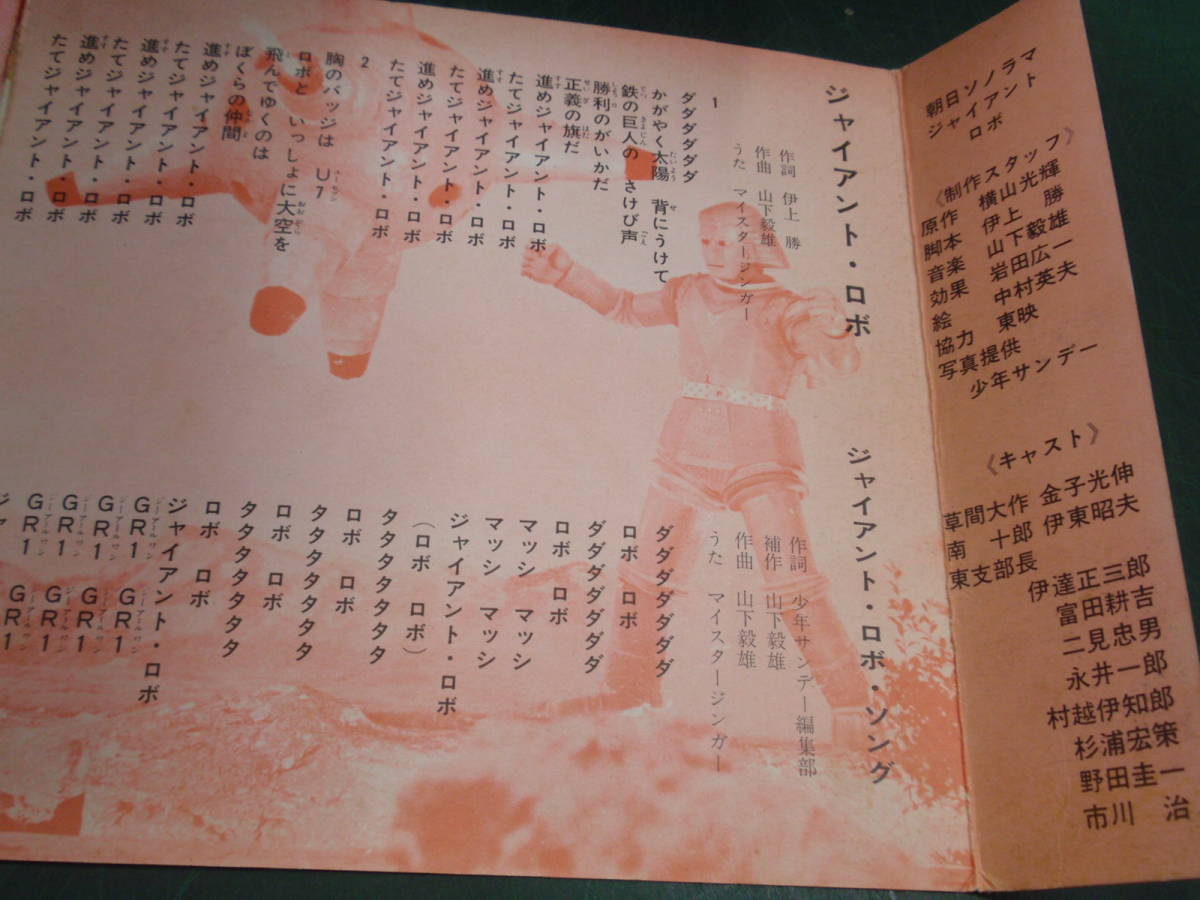 朝日ソノラマ
ジャイアント
ロボ
《制作スタッフ》
原作 横山光輝
脚本 伊上 勝
音楽 山下毅雄
効果 岩田広一
絵 中村英夫
協力 東映
写真提供
少年サンデー
《キャスト》
草間大作 金子光伸
南 十郎 伊東昭夫
東支部長
伊達正三郎
富田耕吉
二見忠男
永井一郎
村越伊知郎
杉浦宏策
野田圭一
市川 治
ジャイアント・ロボ
作詞 伊上 勝
作曲 山下毅雄
うた マイスタージンガー
1
ダダダダダダ
かがやく太陽 背にうけて
鉄の巨人の さけび声
勝利のがいかだ
正義の旗だ
進めジャイアント・ロボ
たてジャイアント・ロボ
進めジャイアント・ロボ
たてジャイアント・ロボ
進めジャイアント・ロボ
たてジャイアント・ロボ
2
胸のバッジは U7
ロボと いっしょに大空を
飛んでゆくのは
ぼくらの仲間
進めジャイアント・ロボ
たてジャイアント・ロボ
進めジャイアント・ロボ
たてジャイアント・ロボ
進めジャイアント・ロボ
たてジャイアント・ロボ
ジャイアント・ロボ・ソング
作詞 少年サンデー編集部
補作 山下毅雄
作曲 山下毅雄
うた マイスタージンガー
ダダダダダダダ
ロボ ロボ
ダダダダダダダ
ロボ ロボ
マッシ マッシ
マッシ マッシ
ジャイアント・ロボ
(ロボ ロボ)
タタタタタタタ
ロボ ロボ
タタタタタタタ
ロボ ロボ
タタタタタタタ
ロボ ロボ
ジャイアント・ロボ
GR1 GR1
GR1 GR1
GR1 GR1
GR1 GR1